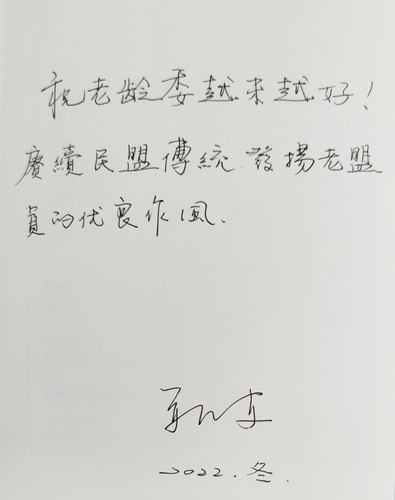 祝老龄委越来越好！
赓續民盟傳統.發揚老盟
員的优良作風.
2022.冬.